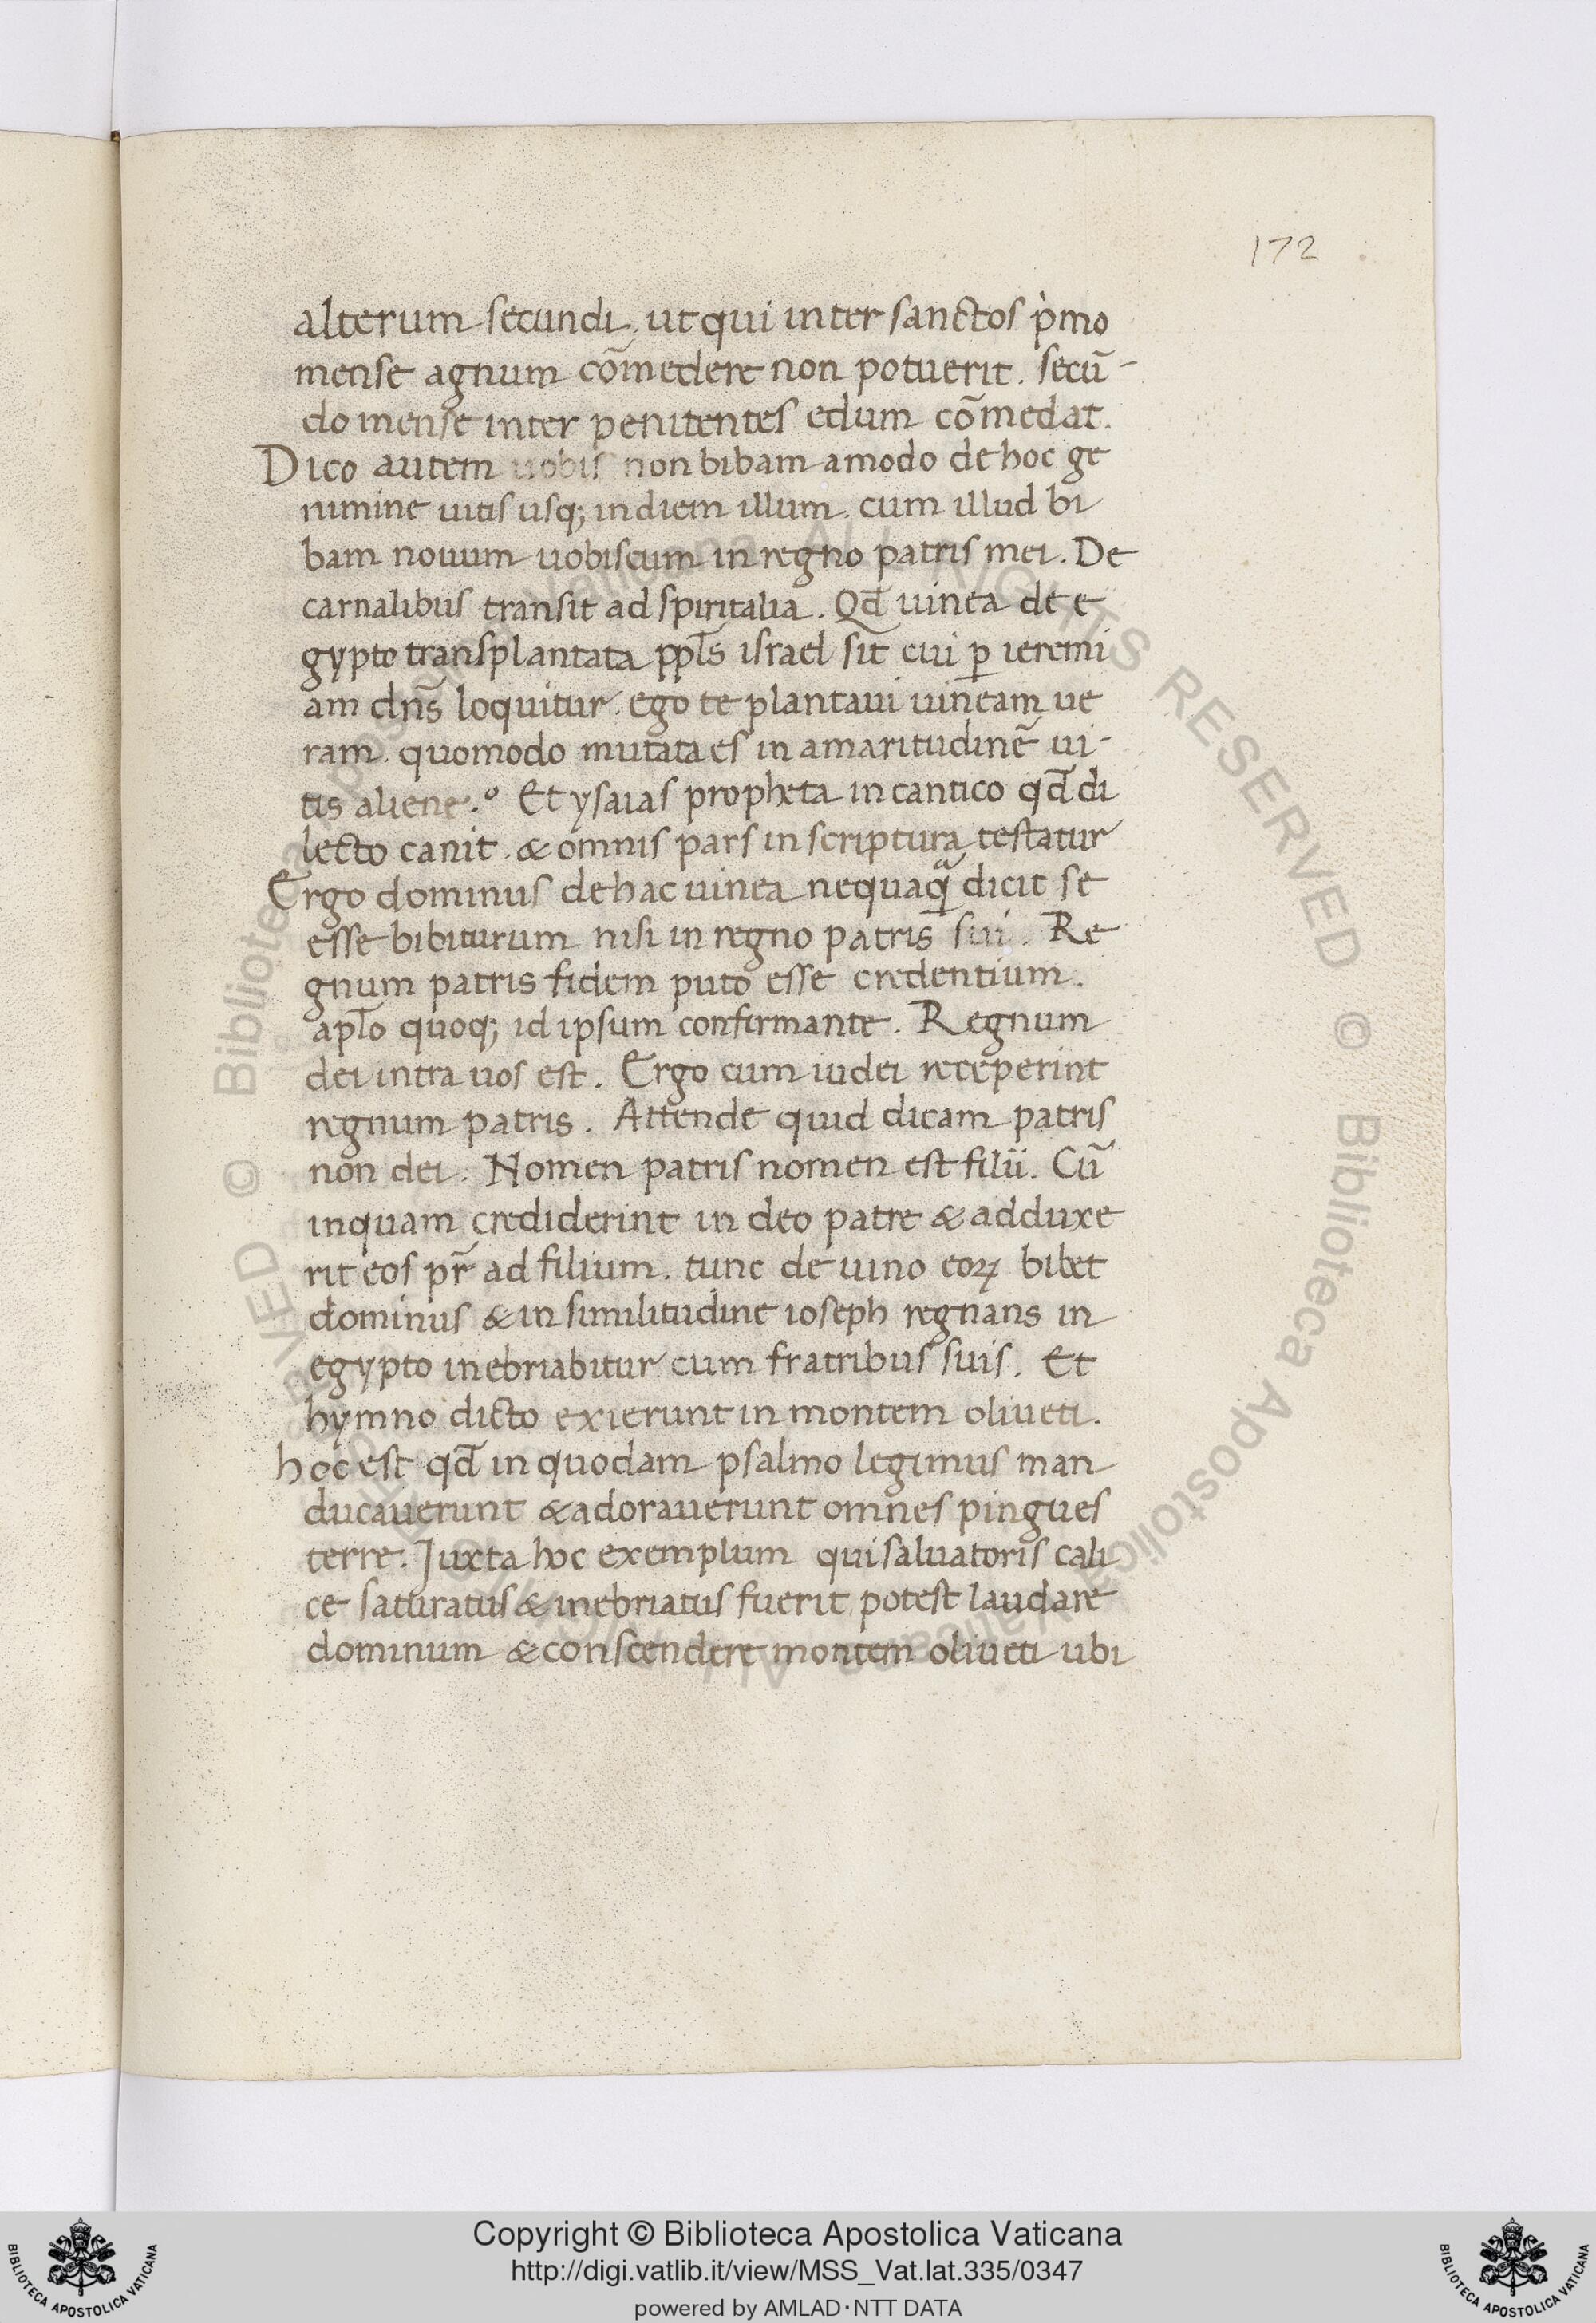 172
alterum secundi. ut qui inter sanctos p̀mo
mense agnum cōmedere non potuerit. secū-
do mense inter penitentes edum cōmedat.
Dico autem uobis non bibam amodo de hoc ge
nimine uitis usq; in diem illum. cum illud bi
bam nouum uobiscum in regno patris mei. De
carnalibus transit ad spiritalia. Qd̄ uinea de e
gypto transplantata ppl̄s israel sit cui ꝑ ieremi
am dn̄s loquitur. ego te plantaui uineam ue
ram. quomodo mutata es in amaritudinē ui-
tis aliene.° Et ysaias propheta in cantico qd̄ di
lecto canit. & omnis pars in scriptura testatur
Ergo dominus de hac uinea nequaꝗᷓ dicit se
esse bibiturum nisi in regno patris sui. Re
gnum patris fidem puto esse credentium.
apl̄o quoq; id ipsum confirmante. Regnum
dei intra uos est. Ergo cum iudei receperint
regnum patris. Attende quid dicam patris
non dei. Nomen patris nomen est filii. Cū
inquam crediderint in deo patre & adduxe
rit eos pr̄ ad filium. tunc de uino eoꝝ bibet
dominus & in similitudine ioseph regnans in
egypto inebriabitur cum fratribus suis. Et
hymno dicto exierunt in montem oliueti.
hoc est qd̄ in quodam psalmo legimus man
ducauerunt & adorauerunt omnes pingues
terre. Juxta hoc exemplum qui saluatoris cali
ce saturatus & inebriatus fuerit potest laudare
dominum & conscendere montem oliueti ubi
Copyright © Biblioteca Apostolica Vaticana
http://digi.vatlib.it/view/MSS_Vat.lat.335/0347
powered by AMLAD·NTT DATA
BIBLIOTECA APOSTOLICA VATICANA
BIBLIOTECA APOSTOLICA VATICANA